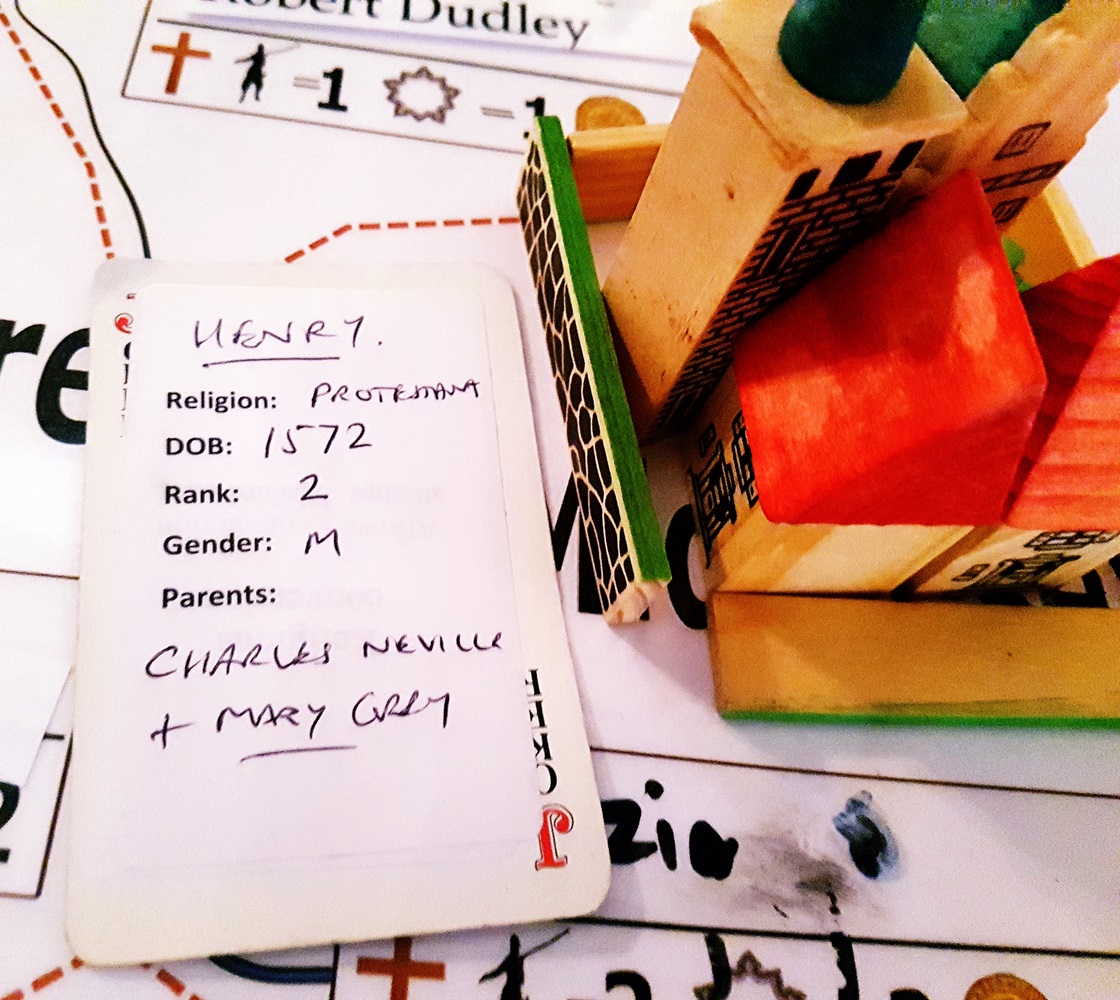 Robert Dudley
=1 =1
re
HENRY.
Religion: PROTESTANT
DOB: 1572
Rank: 2
Gender: M
Parents:
CHARLES NEVILLE
+ MARY GREY
JOKER
2